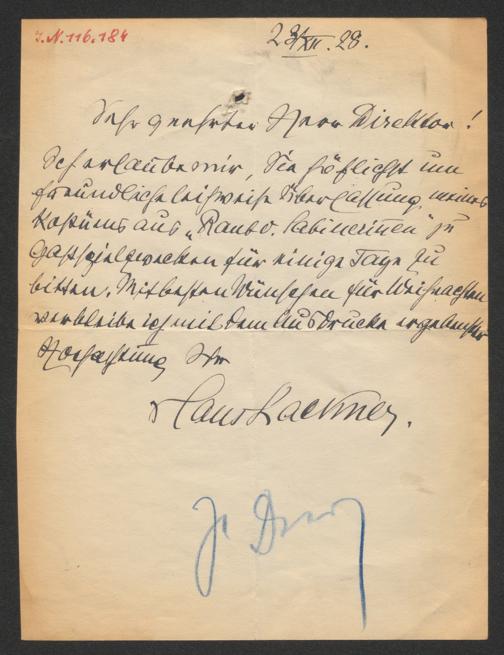 J.N. 116.184
23/XII. 28.
Sehr geehrter Herr Direktor!
Ich erlaube mir, Sie höflichst um
freundliche leihweise Überlassung meines
Kostüms aus „Raub d. Sabinerinnen" zu
Gastspielzwecken für einige Tage zu
bitten. Mit besten Wünschen für Weihnachten
verbleibe ich mit dem Ausdrucke ergebenster
Hochachtung Ihr
Hans Lackner.